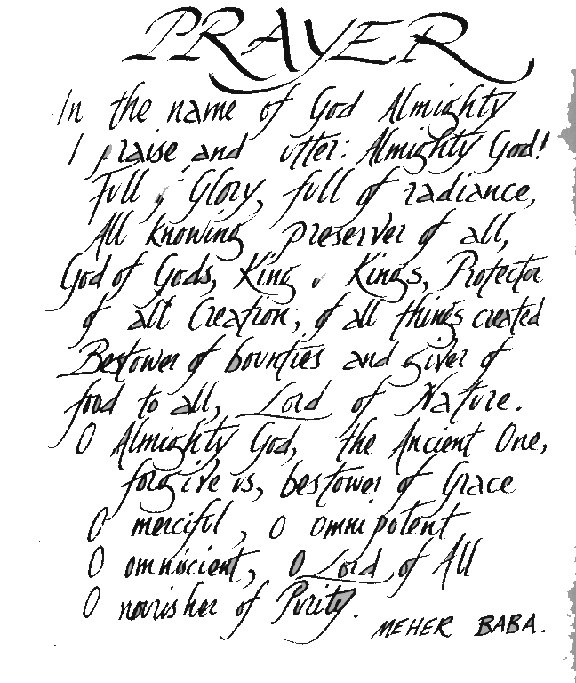 PRAYER
In the name of God Almighty
I praise and utter: Almighty God!
Full of Glory, full of radiance,
All knowing preserver of all,
God of Gods, King of Kings, Protector
of all Creation, of all things created
Bestower of bounties and giver of
food to all, Lord of Nature.
O Almighty God, the Ancient One,
forgive us, bestower of Grace
O merciful, O omnipotent
O omniscient, O Lord of All
O nourisher of Purity.
MEHER BABA.